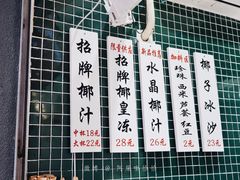 招牌椰汁
中杯18元
大杯22元
限量供应
招牌椰皇冻
28元
新品推荐
水晶椰汁
26元
加料区
珍珠西米芦荟红豆
2元
椰子冰沙
23元